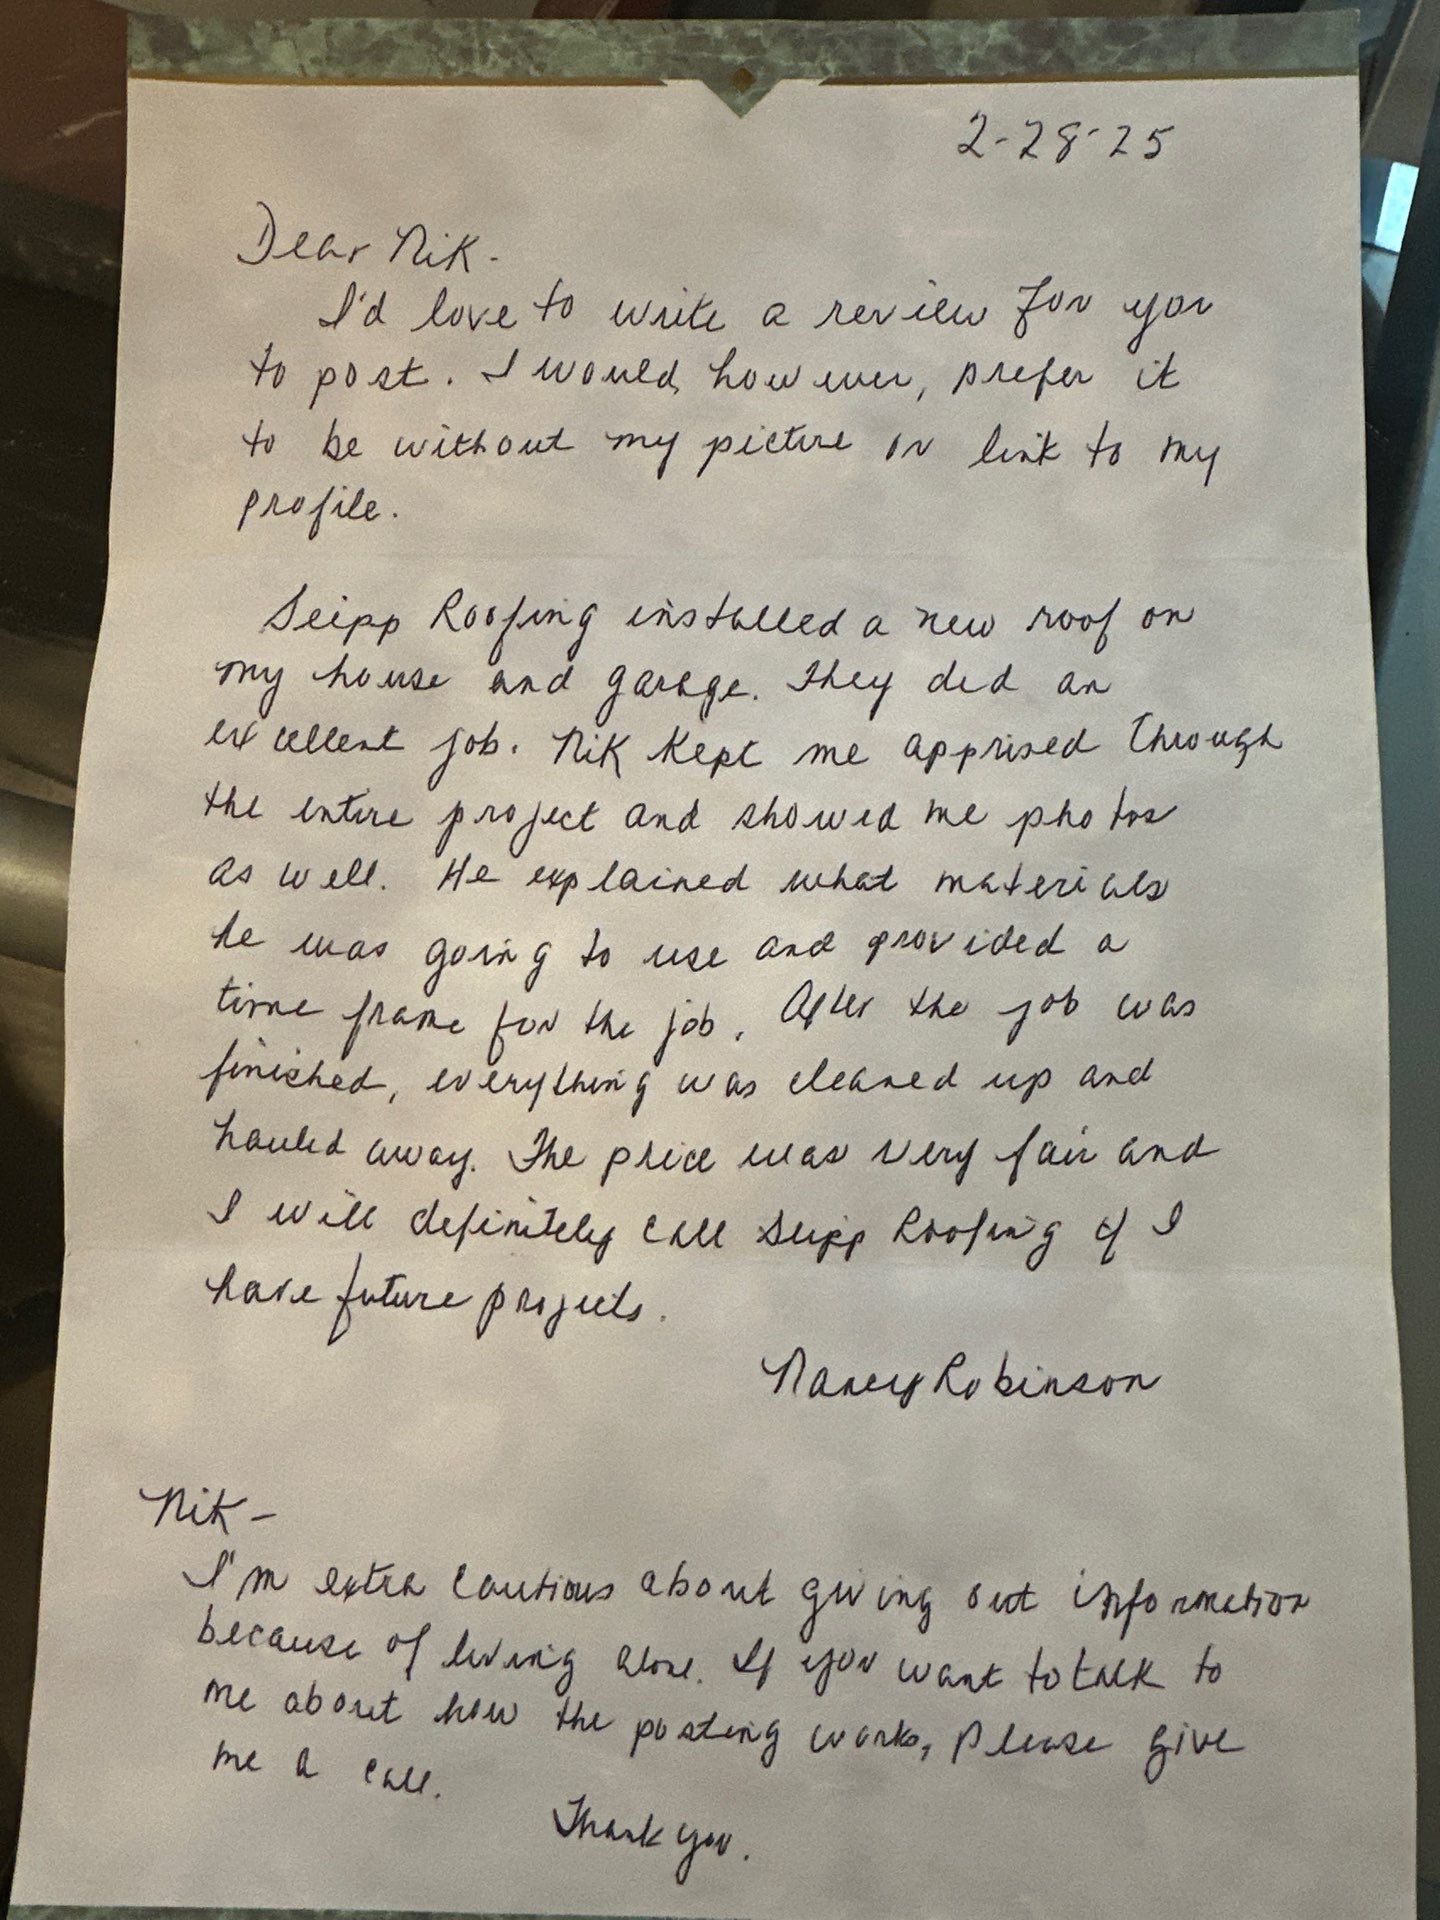 2-28-25
Dear Nik-
I'd love to write a review for you
to post. I would, however, prefer it
to be without my picture or link to my
profile.
Seipp Roofing installed a new roof on
my house and garage. They did an
excellent job. Nik kept me apprised through
the entire project and showed me photos
as well. He explained what materials
he was going to use and provided a
time frame for the job. After the job was
finished, everything was cleaned up and
hauled away. The price was very fair and
I will definitely call Seipp Roofing if I
have future projects.
Nancy Robinson
Nik-
I'm extra cautious about giving out information
because of living alone. If you want to talk to
me about how the posting works, please give
me a call.
Thank you.